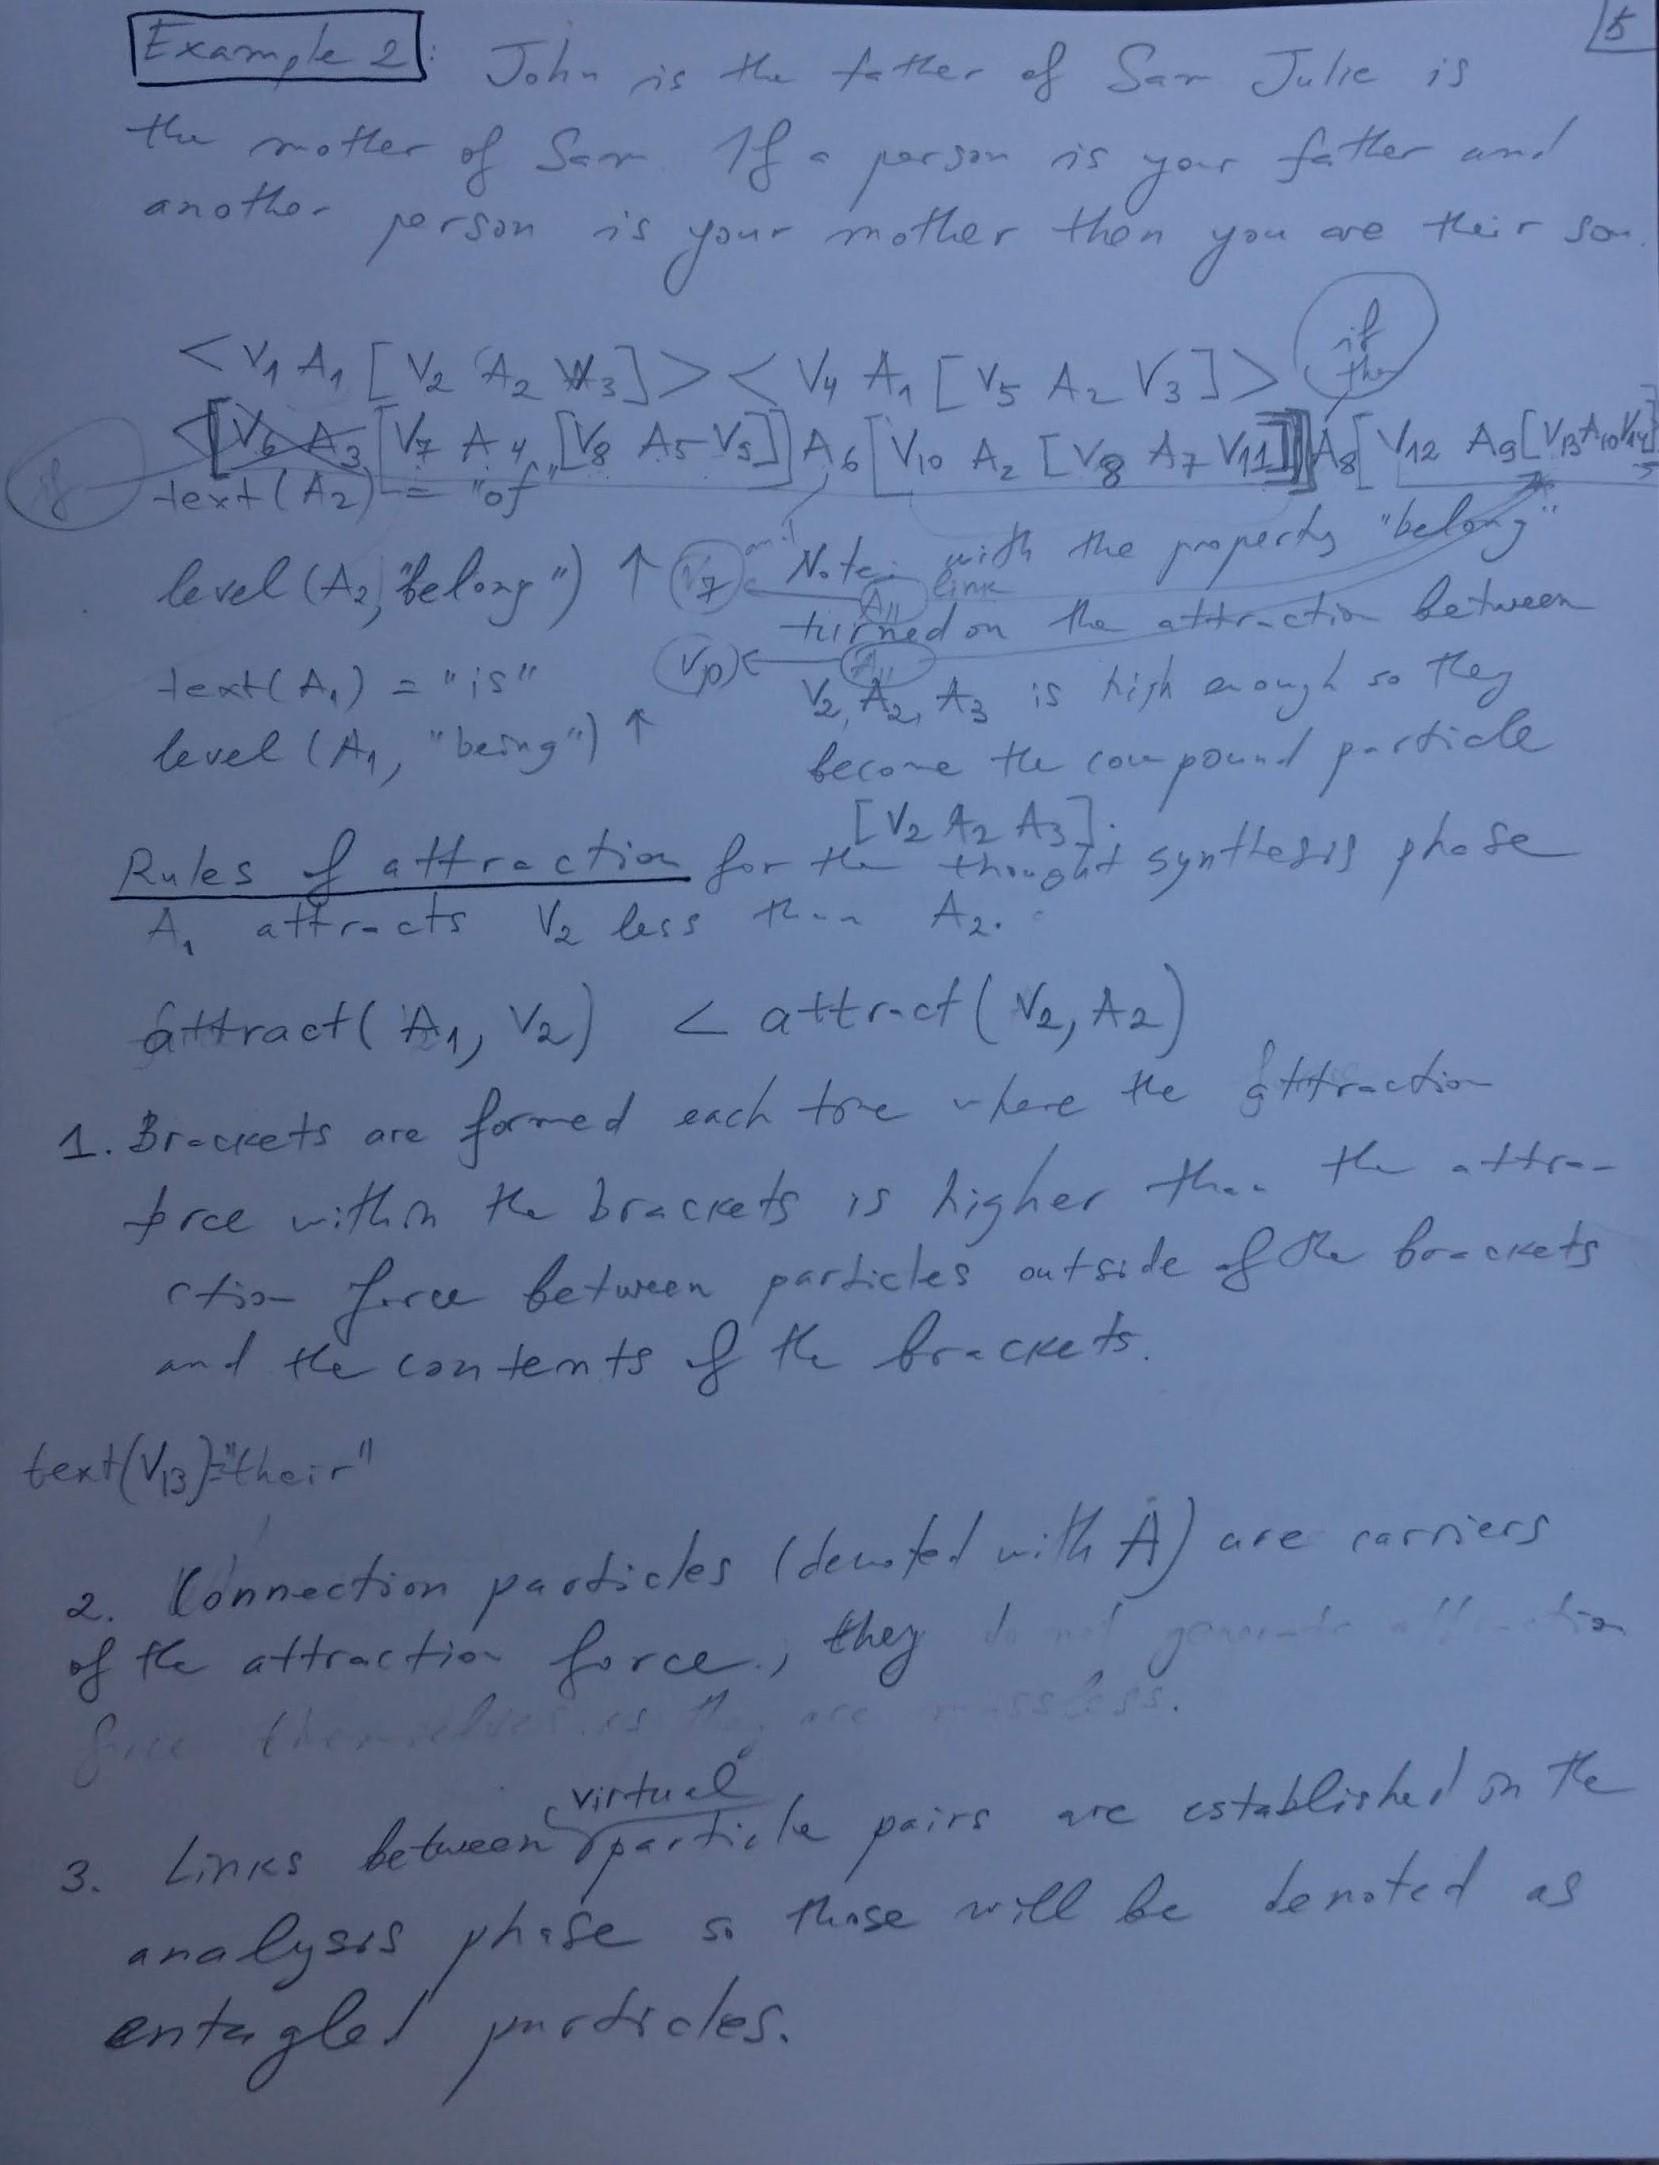 5
Example 2: John is the father of Sam Julie is
the mother of Sam. If a person is your father and
another person is your mother then you are their son.
if
then
<V1 A1 [V2 A2 V3]> <V4 A1 [V5 A2 V3]>
<[V6 A3 [V7 A4 [V8 A5 V9]] A6 [V10 A2 [V8 A7 V11]]] A8 [V12 A9 [V13 A10 V14]
if
text(A2) = "of"
level(A2, "belong") ↑
and
V7 ← A11 link
Note: with the property "belong"
turned on the attraction between
text(A1) = "is"
V10 ← A11
V2, A2, A3 is high enough so they
level(A1, "being") ↑
become the compound particle
[V2 A2 A3].
Rules of attraction for the thought synthesis phase
A1 attracts V2 less than A2.
attract(A1, V2) < attract(V2, A2)
1. Brackets are formed each time where the attraction
force within the brackets is higher than the attra-
ction force between particles outside of the brackets
and the contents of the brackets.
text(V13)="their"
2. Connection particles (denoted with A) are carriers
of the attraction force, they do not generate attraction
force themselves as they are massless.
3. Links between virtual particle pairs are established in the
analysis phase so those will be denoted as
entagled particles.